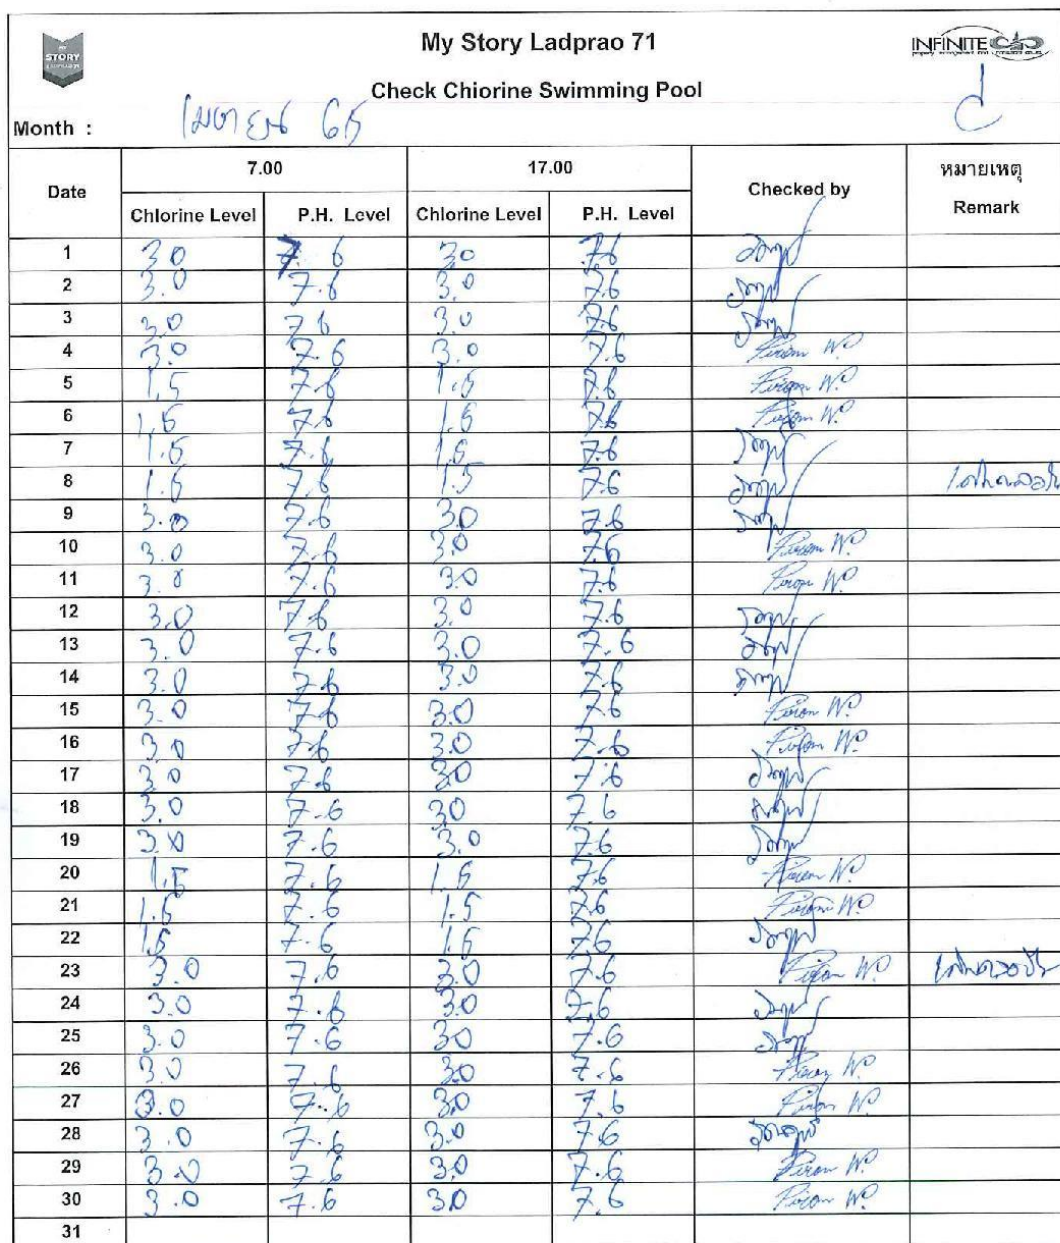 STORY
My Story Ladprao 71
INFINITE
Check Chiorine Swimming Pool
Month : เมษายน 65
Date 7.00 17.00 Checked by หมายเหตุ
Chlorine Level P.H. Level Chlorine Level P.H. Level Remark
1 3.0 7.6 3.0 7.6
2 3.0 7.6 3.0 7.6
3 3.0 7.6 3.0 7.6
4 3.0 7.6 3.0 7.6 Pirom W.
5 1.5 7.6 1.5 7.6 Pirom W.
6 1.5 7.6 1.5 7.6 Pirom W.
7 1.5 7.6 1.5 7.6
8 1.5 7.6 1.5 7.6 เติมคลอรีน
9 3.0 7.6 3.0 7.6
10 3.0 7.6 3.0 7.6 Pirom W.
11 3.0 7.6 3.0 7.6 Pirom W.
12 3.0 7.6 3.0 7.6
13 3.0 7.6 3.0 7.6
14 3.0 7.6 3.0 7.6
15 3.0 7.6 3.0 7.6 Pirom W.
16 3.0 7.6 3.0 7.6 Pirom W.
17 3.0 7.6 3.0 7.6
18 3.0 7.6 3.0 7.6
19 3.0 7.6 3.0 7.6
20 1.5 7.6 1.5 7.6 Pirom W.
21 1.5 7.6 1.5 7.6 Pirom W.
22 1.5 7.6 1.5 7.6
23 3.0 7.6 3.0 7.6 Pirom W. เติมคลอรีน
24 3.0 7.6 3.0 7.6
25 3.0 7.6 3.0 7.6
26 3.0 7.6 3.0 7.6 Pirom W.
27 3.0 7.6 3.0 7.6 Pirom W.
28 3.0 7.6 3.0 7.6
29 3.0 7.6 3.0 7.6 Pirom W.
30 3.0 7.6 3.0 7.6 Pirom W.
31